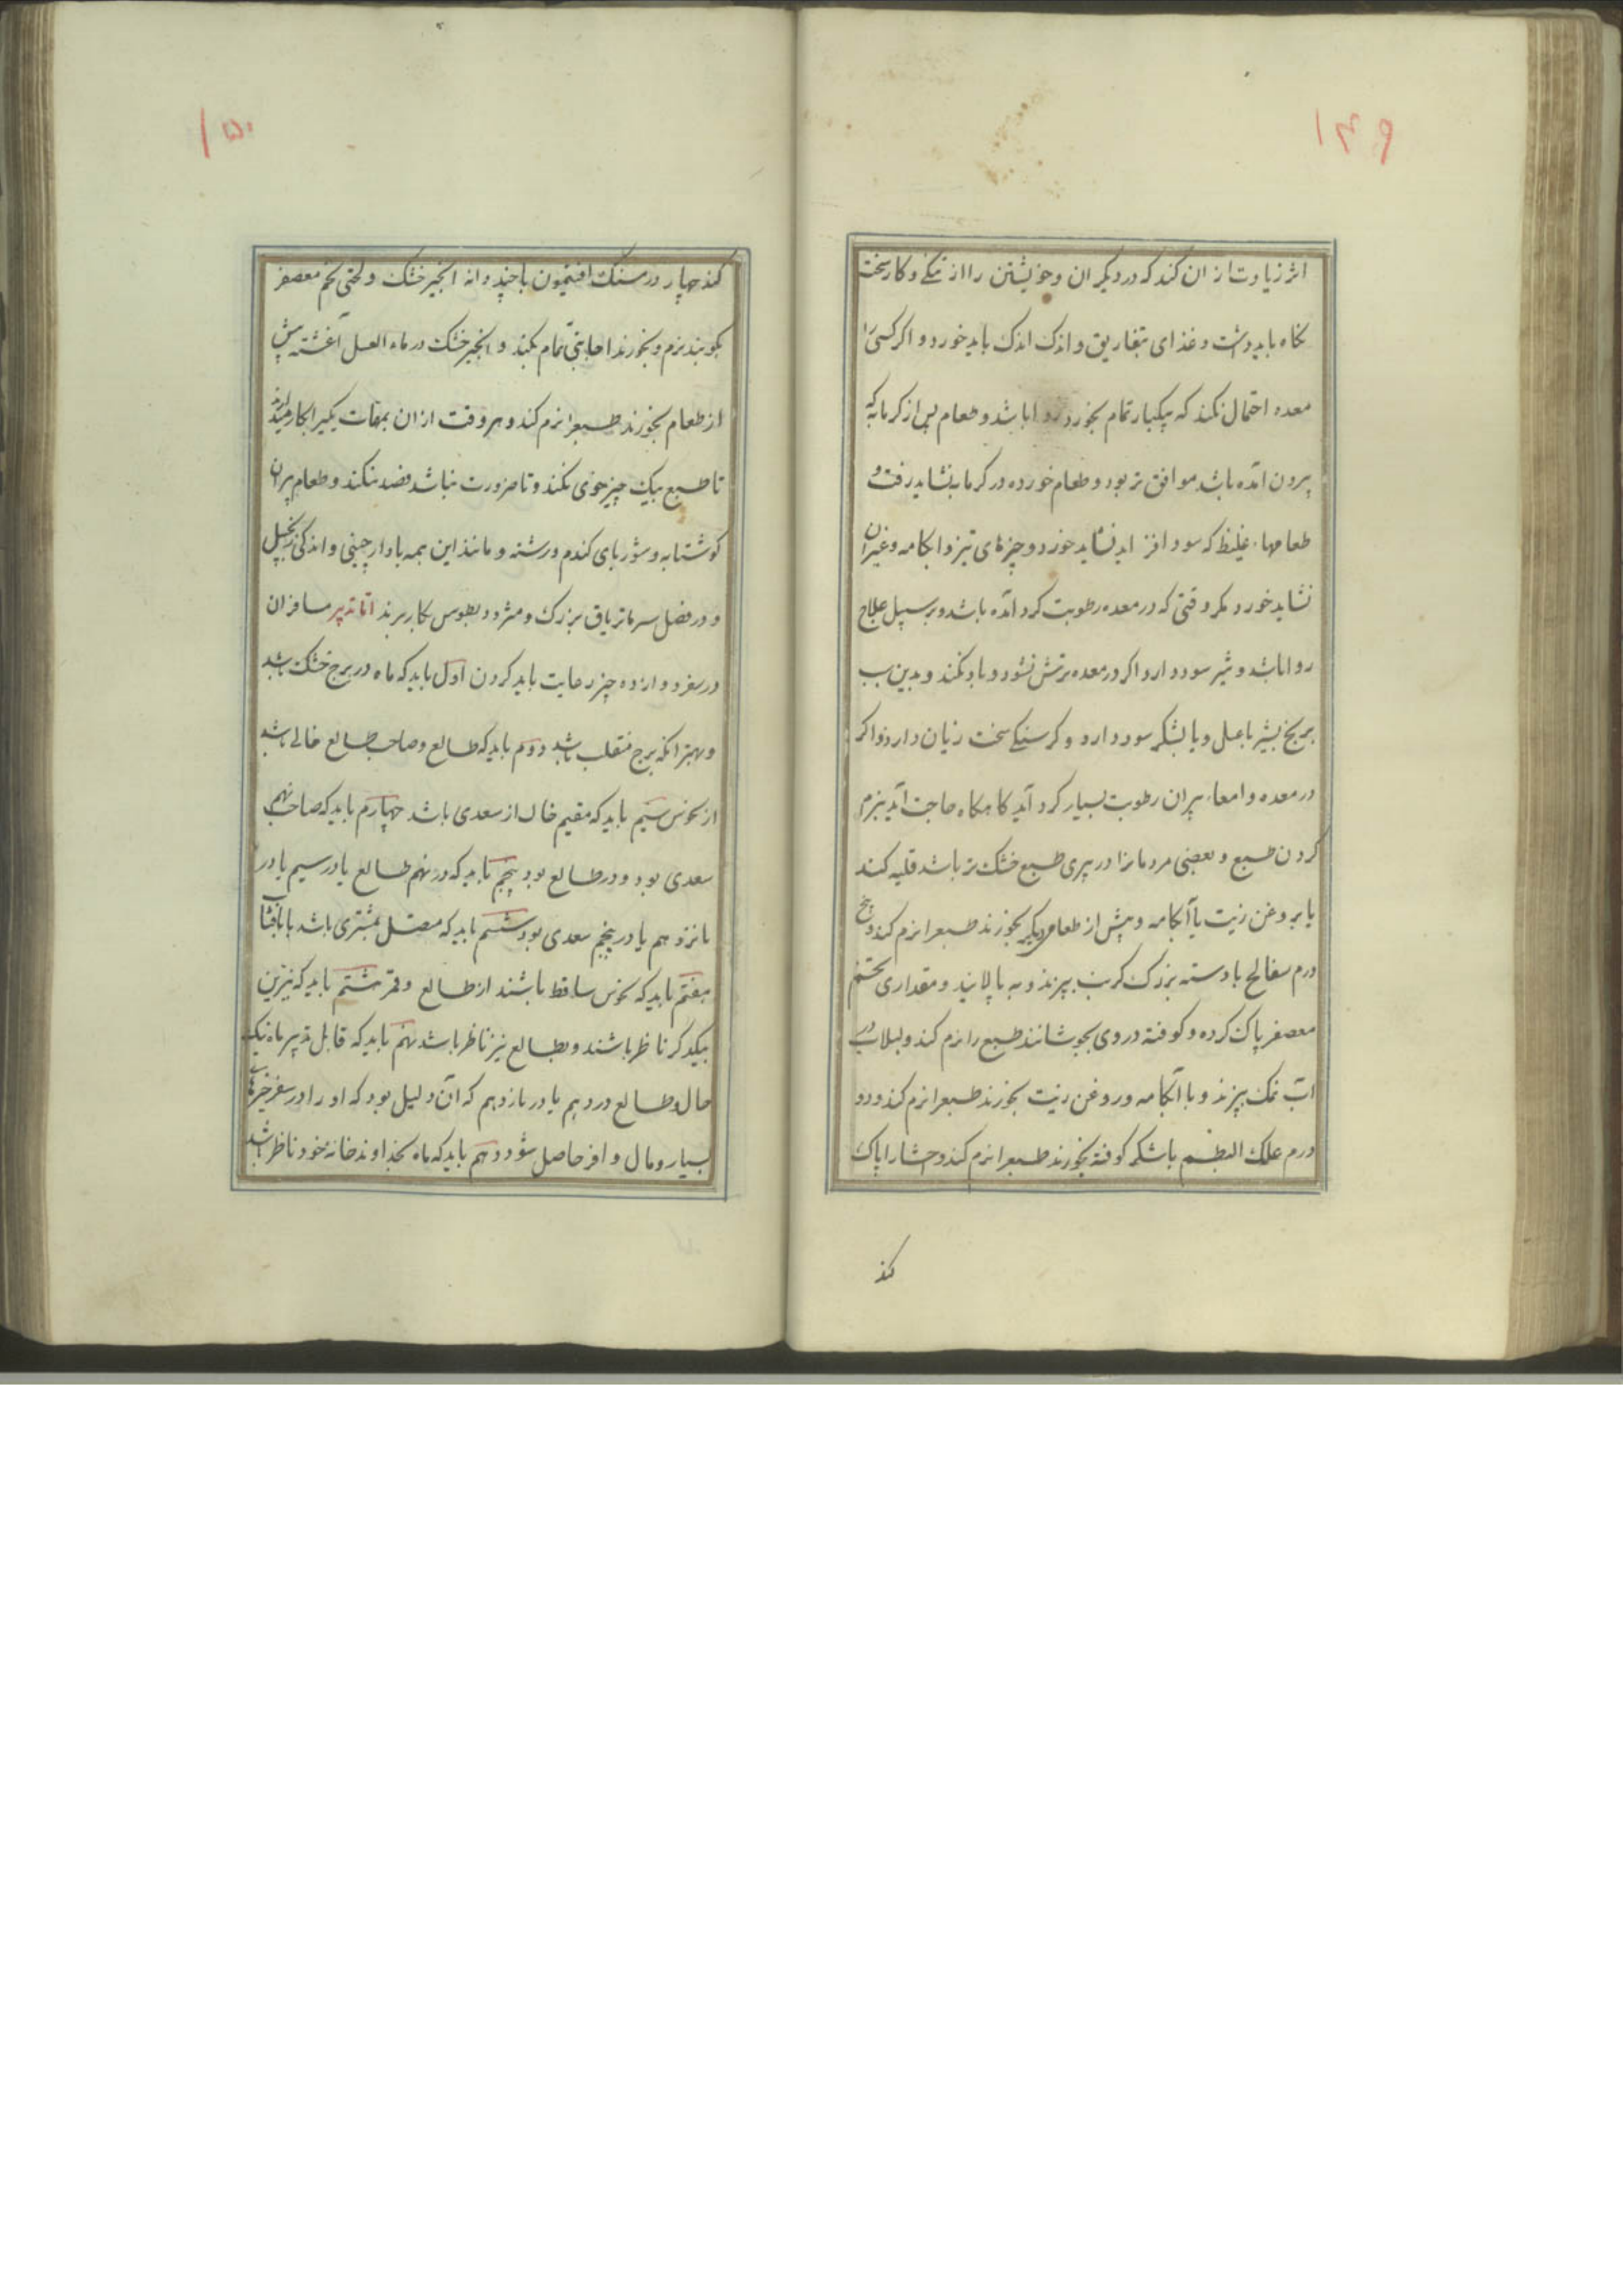 ۱۴۹
اثر زیادت از ان کند که در دیگران و خویشتن را از تنگی و کار سخت
نگاه باید داشت و غذای بتفاریق و اندک اندک باید خورد و اگر کسی را
معده احتمال نکند که بیکبار تمام بخورد روا باشد و طعام پس از گرمابه که
بیرون آمده باشد موافق تر بود و طعام خورده در گرمابه نشاید رفت و
طعامها غلیظ که سودا فزاید نشاید خورد و چیزهای تیز و ابکامه و غیر ان
نشاید خورد مگر وقتی که در معده رطوبت گرد آمده باشد و بر سبیل علاج
روا باشد و شیر سود دارد اگر در معده ترش نشود و باد نکند و بدین سبب
برنج بشیر با عسل و یا بشکر سود دارد و گرسنگی سخت زیان دارد و اگر
در معده و امعاء پیران رطوبت بسیار گرد آید گاه گاه حاجت آید بنرم
کردن طبع و بعضی مردمانرا در پیری طبع خشک تر باشد قلیه کند
یا بروغن زیت یا آبکامه و پیش از طعام دیگر بخورند طبعرا نرم کند و پنج
درم بسفایج با دسته بزرگ کرنب بپزند و به پالایند و مقداری تخم
معصفر پاک کرده و کوفته در وی بجوشانند طبع را نرم کند و لبلاب در
اب نمک بپزند و با آبکامه و روغن زیت بخورند طبعرا نرم کند و دو
درم علک البطم با شکر کوفته بخورند طبعرا نرم کند و احشا را پاک
کند
۱۵۰
کند چهار درمسنگ افتیمون با چند دانه انجیر خشک و لختی تخم معصفر
بکوبند نرم و بخورند اجابتی تمام بکند و انجیر خشک در ماء العسل آغشته پیش
از طعام بخورند طبعرا نرم کند و هر وقت از ان بهقات یکی را بکار میدارند
تا طبع بیک چیز خوی نکند و تا ضرورت نباشد فصد نکند و طعام پیران
گوشتابه و شوربای گندم و رشته و مانند این همه با دارچینی و اندکی زنجبیل
و در فصل سرما تریاق بزرگ و مثرودیطوس بکار برند اما تدبیر مسافران
در سفر دوازده چیز رعایت باید کردن اول باید که ماه در برج خشک باشد
و بهتر انکه برج منقلب باشد دوم باید که طالع و صاحب طالع خالی باشد
از نحوس سیم باید که مقیم خال از سعدی باشد چهارم باید که صاحب نهم
سعدی بود و در طالع بود پنجم باید که در نهم طالع یا در سیم یا در
یانزدهم یا در پنجم سعدی بود ششم باید که متصل بمشتری باشد یا بافتاب
هفتم باید که نحوس ساقط باشند از طالع و قمر هشتم باید که نیرین
بیکدگر ناظر باشند و بطالع نیز ناظر باشد نهم باید که قابل تدبیر ماه نیک
حال و طالع در دهم یا در یازدهم که آن دلیل بود که او را در سفر خیرهای
بسیار و مال وافر حاصل شود دهم باید که ماه بخداوند خانهٔ خود ناظر باشد